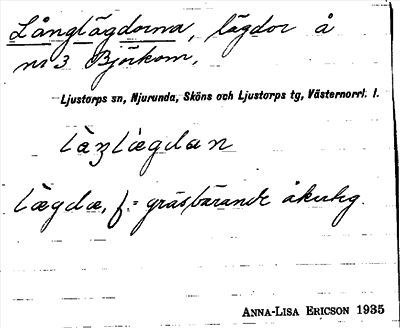 Långlägdorna, lägdor å
nr 3 Björkom,
Ljustorps sn, Njurunda, Sköns och Ljustorps tg, Västernorrl. l.
làŋlægdan
lægda, f = gräsbärande åkerteg.
ANNA-LISA ERICSON 1935